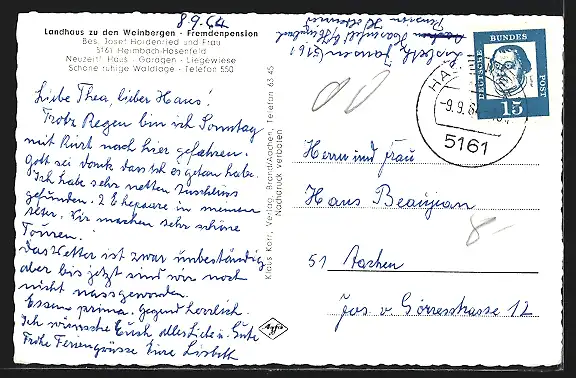 8.9.64
Landhaus zu den Weinbergen - Fremdenpension
Bes. Josef Hardenried und Frau
5161 Heimbach-Hasenfeld
Neuzeitl. Haus - Garagen - Liegewiese
Schöne ruhige Waldlage - Telefon 550
Liebe Thea, lieber Hans!
Trotz Regen bin ich Sonntag
mit Kurt nach hier gefahren.
Gott sei dank dass ich es getan habe.
Ich habe sehr netten Anschluss
gefunden. 2 Ehepaare in meinem
Alter. Wir machen sehr schöne
Touren.
Das Wetter ist zwar unbeständig
aber bis jetzt sind wir noch
nicht nassgeworden.
Essen prima. Gegend herrlich.
Ich wünsche Euch alles Liebe u. Gute
Frohe Feriengrüsse Eure Lisbeth
Klaus Karr, Verlag, Brand/Aachen, Telefon 63 45
Nachdruck verboten
Agfa
Lisbeth Janssen 5161
Pension
DEUTSCHE BUNDES POST
15
-9.9.64
5161
Herrn und Frau
Hans Beaujean
51 Aachen
Jos. v. Görresstrasse 12
8-